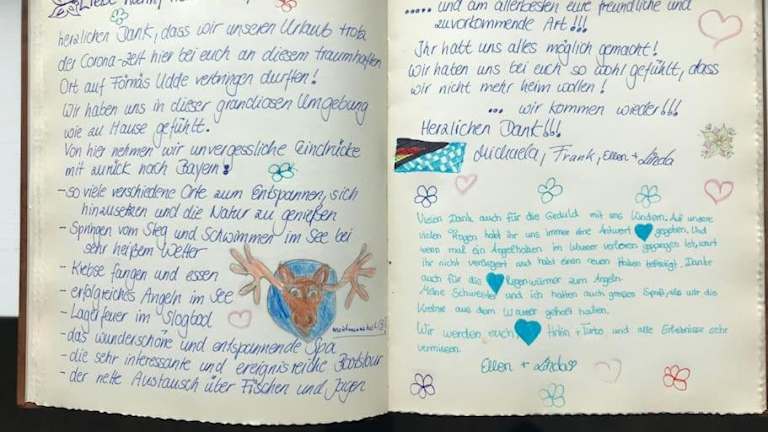 Liebe
herzlichen Dank, dass wir unseren Urlaub trotz
der Corona-Zeit hier bei euch an diesem traumhaften
Ort auf Tomas Udde verbringen durften!
Wir haben uns in dieser grandiosen Umgebung
wie zu Hause gefühlt.
Von hier nehmen wir unvergessliche Eindrücke
mit zurück nach Bayern!
- so viele verschiedene Orte zum Entspannen, sich
hinzusetzen und die Natur zu genießen
- Springen vom Steg und Schwimmen im See bei
sehr heißem Wetter
- Krebse fangen und essen
- erfolgreiches Angeln im See
- Lagerfeuer im Slogbod
- das wunderschöne und entspannende Spa
- die sehr interessante und ereignisreiche Bootstour
- der nette Austausch über Fischen und Jagen
..... und am allerbesten eure freundliche und
zuvorkommende Art!!!
Ihr habt uns alles möglich gemacht!
Wir haben uns bei euch so wohl gefühlt, dass
wir nicht mehr heim wollen!
... wir kommen wieder!!!
Herzlichen Dank!!!
Michaela, Frank, Ellen + Linda
Vielen Dank auch für die Geduld mit uns Kindern. Auf unsere
vielen Fragen habt ihr uns immer eine Antwort gegeben. Und
wenn mal ein Angelhaken im Wasser verloren gegangen ist, wart
ihr nicht verärgert und habt einen neuen Haken befestigt. Danke
auch für die Regenwürmer zum Angeln.
Meine Schwester und ich hatten auch großen Spaß, als wir die
Krebse aus dem Wasser geholt haben.
Wir werden euch, + Turbo und alle Erlebnisse sehr
vermissen.
Ellen + Linda